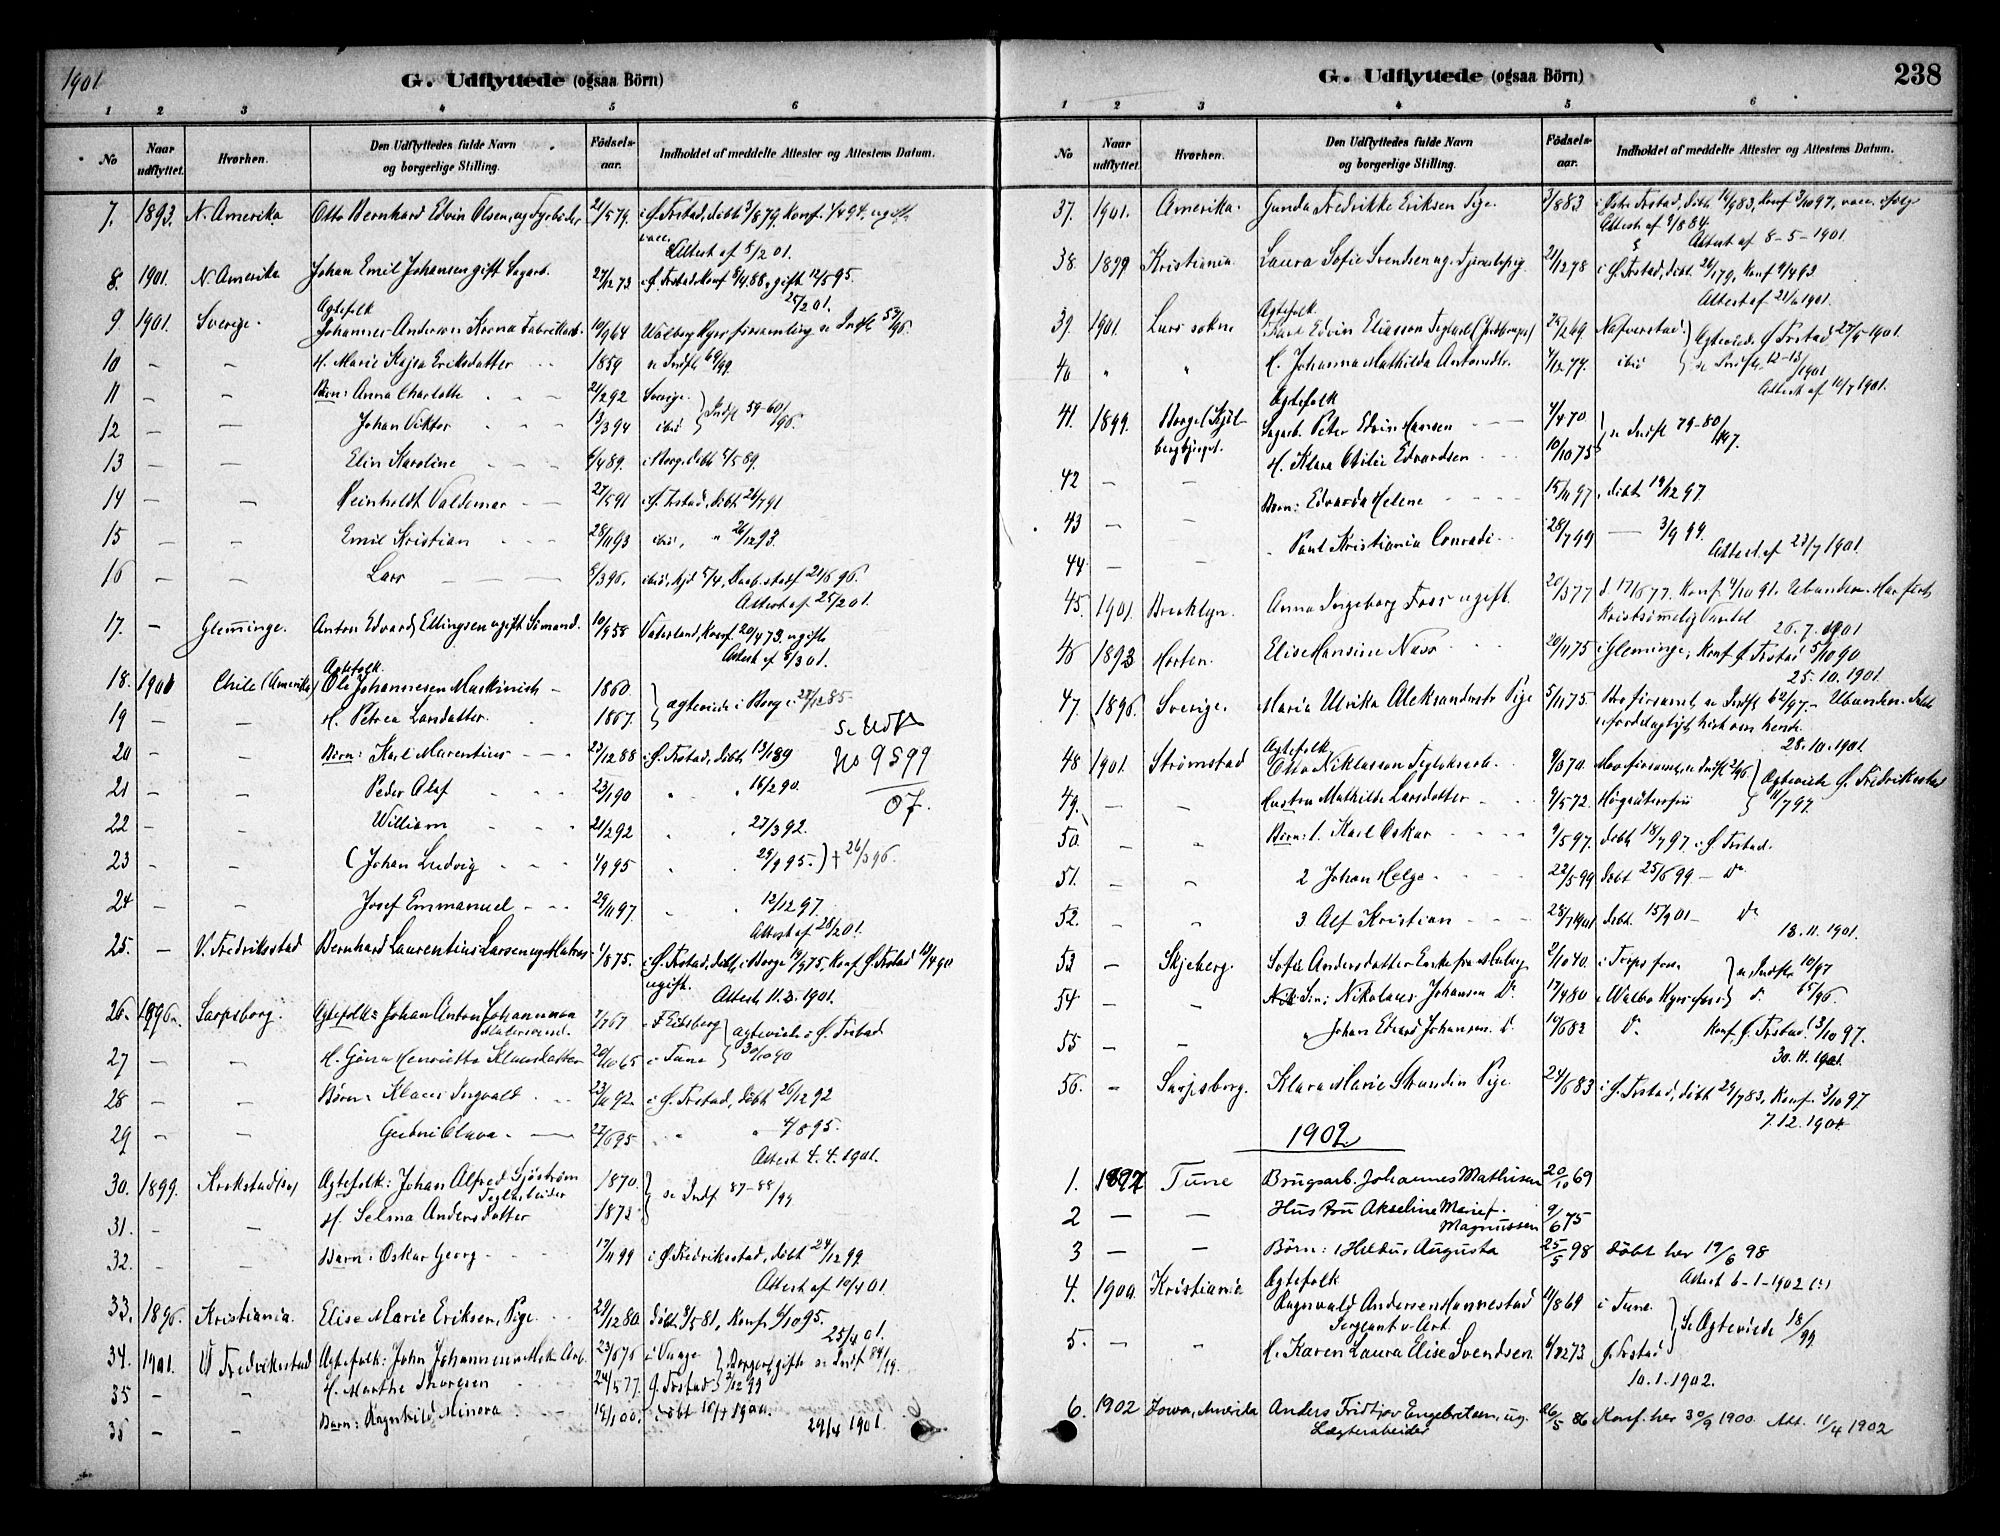 1901
G. Udflyttede (ogsaa Börn)
1 2 3 4 5 6
No
Naar udflyttet.
Hvorhen.
Den Udflyttedes fulde Navn og borgerlige Stilling.
Födsels-aar.
Indholdet af meddelte Attester og Attestens Datum.
7. 1893. N. Amerika Otto Bernhard Edvin Olsen, ug 21/5 79. i Ø. Frstad, döbt 3/8 79. Konf. 1/4 94. ugift.
vacc. Attest af 5/2 01.
8. 1901. N. Amerika Johan Emil Johansen gift Sagarb. 27/12 73 i Ø. Frstad Konf 8/4 88, gift 12/5 95.
25/2 01.
Agtefolk
9 1901. Sverige. Johannes Anderson Korna Fabrikarb. 10/9 64 Walberg Kyrsforsamling se Indfl 59/96.
10 — — H. Marie Kajsa Eriksdatter 1859 se Indfl 64/99
11 — — Börn: Anna Charlotte 21/2 92 Sverige. } Indfl 59-60/96.
12 — — Johan Viktor 13/3 94 ibid
13 — — Elin Karoline 6/4 89. i Borge, döbt 5/5 89.
14 — — Reinholdt Valdemar 27/5 91 i Ø. Frstad, döbt 26/7 91
15 — — Emil Kristian 28/11 93 ibid, " 26/12 93.
16 — — Lars 8/3 96. ibid, hjd 5/4, Daab stadf 21/6 96.
Attest af 25/2 01.
17. — Glemminge. Anton Edvard Ellingsen ugift Sömand. 10/9 58 Vaterland, Konf. 20/4 73. ugift
Attest af 8/3 01.
Agtefolk.
18. 1901 Chile (Amerika) Ole Johannesen Maskinist 1860. } agteviede i Borge 27/12 85.
19 — — H. Petrea Larsdatter. 1867.
se Udfl
No 9599
07.
20 — — Börn: Karl Marentius 23/12 88 i Ø. Frstad, döbt 13/1 89
21 — — Peder Olaf 23/1 90 " " 16/2 90.
22 — — William 21/2 92 " " 27/3 92.
23 — — (Johan Ludvig 4/9 95 " " 29/9 95.) + 26/3 96.
24 — — Josef Emmanuel 29/11 97. " " 12/12 97.
Attest af 28/2 01.
25. — V. Fredriksstad Bernhard Laurentius Larsen ug. Matros 1/8 75. i Ø. Frstad, döbt i Borge 19/9 75, Konf. Ø. Frstad 13/4 90
ugift. Attest 11.3.1901.
26. 1896. Sarpsborg. Agtefolk: Johan Anton Johannesen 7/7 67 i Eidsberg } agteviede i Ø. Frstad
27 — — H. Gina Henriette Klausdatter 20/10 65 i Tune } 30/10 90
28 — — Börn: Klaus Ingvald 23/11 92. i Ø. Frstad, döbt 26/12 92
29 — — Gudni Olava 22/6 95 " " 4/8 95.
Attest 4.4.1901.
30. 1899. Krokstad Agtefolk: Johan Alfred Sjöström 1870. } se Indfl 87-88/99
Teglarbeider
31. — — H. Selma Andersdatter 1873
32. — — Barn: Oskar Georg 17/11 99 i Ø. Fredriksstad, döbt 24/12 99
Attest af 10/4 01.
33. 1896. Kristiania. Elise Marie Eriksen, Pige. 29/12 80. döbt 8/5 81, Konf. 6/10 95.
25/4 01.
34. 1901. V Fredriksstad Agtefolk: John Johannesen Mek. Arb. 23/6 76 i Vaage } Borgerl gifte se Indfl 84/19.
35 — — H. Marthe Thoresen 24/5 77. Ø. Frstad } 2/12 99
36 — — Barn: Ragnhild Minora 19/1 00. i döbt 16/4 1900.
29/4 1901.
G. Udflyttede (ogsaa Börn)
238
1 2 3 4 5 6
No
Naar udflyttet.
Hvorhen.
Den Udflyttedes fulde Navn og borgerlige Stilling.
Födsels-aar.
Indholdet af meddelte Attester og Attestens Datum.
37. 1901. Amerika. Gunda Fredrikke Eriksen Pige. 3/8 83 i Østre Frstad, döbt 16/9 83, Konf 3/10 97, vacc. ifølge
Attest af 9/8 84. Attest af 8-5-1901.
38. 1899 Kristiania. Laura Sofie Svendsen ug. Tjenestepig. 21/12 78 i Ø. Frstad, döbt 26/1 79. Konf 9/4 93
Attest af 21/6 1901.
Agtefolk.
39. 1901. Lurs sokne Karl Edvin Eliasson Teglarb. 26/2 69 Nafverstad. } Agteviede Ø. Frstad 27/5 1901.
40 " " H. Johanna Mathilda Antonsdtr. 4/12 77. ibid } se Indfl, 12-13/1901
Attest af 10/7 1901.
Agtefolk
41. 1899. Borge (Kjölbergbjerget. Sagarb. Peter Edvin Hansen 4/4 70 } se Indfl 79-80/97.
42 — — H. Klara Otilie Edvardsen 10/10 75
43 — — Börn: Edvarda Helene 15/11 97. döbt 19/12 97
44 — — " Paul Kristiania Conradi 28/7 99 — 3/9 99.
Attest af 23/7 1901.
45. 1901. Brooklyn. Anna Ingeborg Foss ugift. 20/3 77 d. 17/6 77. Konf. 4/10 91. Ubunden. Har fört
Kristsömmelig Vandel
26.7.1901
46 1893 Horten. Elise Hansine Næss 20/11 75 i Glemminge, Konf. Ø. Frstad 5/10 90
25.10.1901.
47. 1896. Sverige. Maria Ulrika Aleksandersdtr Pige 5/11 75. Bro forsaml, se Indfl 62/97. Ubunden. Intet
ufordelagtigt hört om hende
28.10.1901
Agtefolk
48 1901. Strømstad Otto Niklasson Teglverksarb. 9/8 70. Hoveforsaml, se Indfl 2/96 } Agteviede Ø. Fredriksstad
49. — — Hustru Mathilde Larsdotter 9/5 72. Högsäter } 11/7 97.
50. — " Börn: 1. Karl Oskar 9/5 97. döbt 18/7 97 i Ø. Frstad.
51. — " 2 Johan Helge 22/5 99 döbt 25/6 99 — Do
52. — " 3 Alf Kristian 28/7 1901 döbt. 15/9 01 — Do
18.11.1901.
53 — Skjeberg. Sofie Andersdatter Enke fra 2/10 40. i Torps fors } se Indfl 10/97
54 — " Sön: Nikolaus Johansen Do 17/4 80 i Walbo Kyrs } Do 65/96.
55 — — " Johan Edvard Johansen. Do 10/6 82 Do Konf. Ø. Frstad 3/10 97.
30.11.1901.
56. — Sarpsborg. Klara Marie Strandin Pige 24/6 83 i Ø. Frstad, döbt 29/7 83, Konf. 3/10 97.
7.12.1901
1902.
1. 1897 Tune Brugsarb. Johannes Mathisen 20/10 69
2 — — Hustru Akseline Marie Magnussen 9/6 75
3 — — Börn: Hildur Augusta 25/5 98 döbt her 19/6 98
Attest 6-1-1902
4. 1900. Kristiania Agtefolk
Ragnvald Andersen Hannestad 11/8 69 i Tune. } Se Agteviede 18/99
Sergeant v. Art.
5. — " H. Karen Laura Elise Svendsen. 6/12 73 Ø. Frstad
10.1.1902.
6. 1902 Iowa, Amerika Anders Fridtjov Engebretsen, ug. 26/5 86 Konf. her 30/9 1900. Att. 11/4 1902
Lægterarbeider